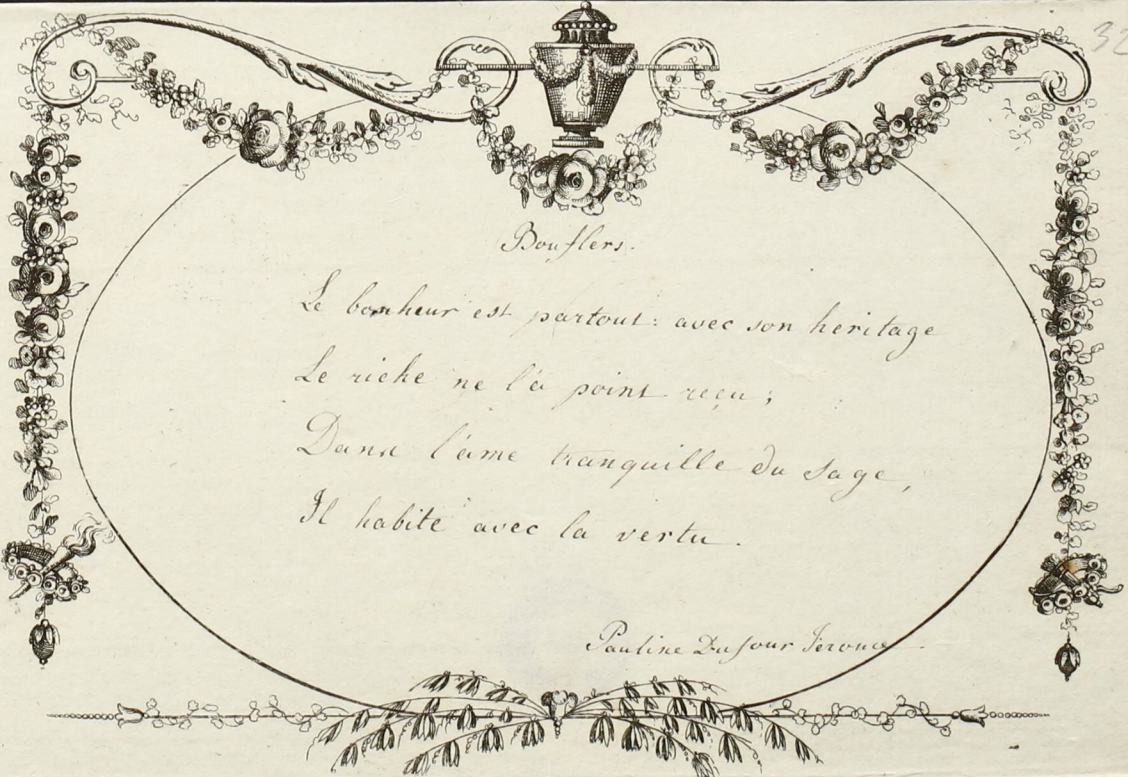 32
Bouflers.
Le bonheur est partout: avec son heritage
Le riche ne l'a point reçu;
Dans l'ame tranquille du sage,
Il habite avec la vertu.
Pauline Dufour Feronce